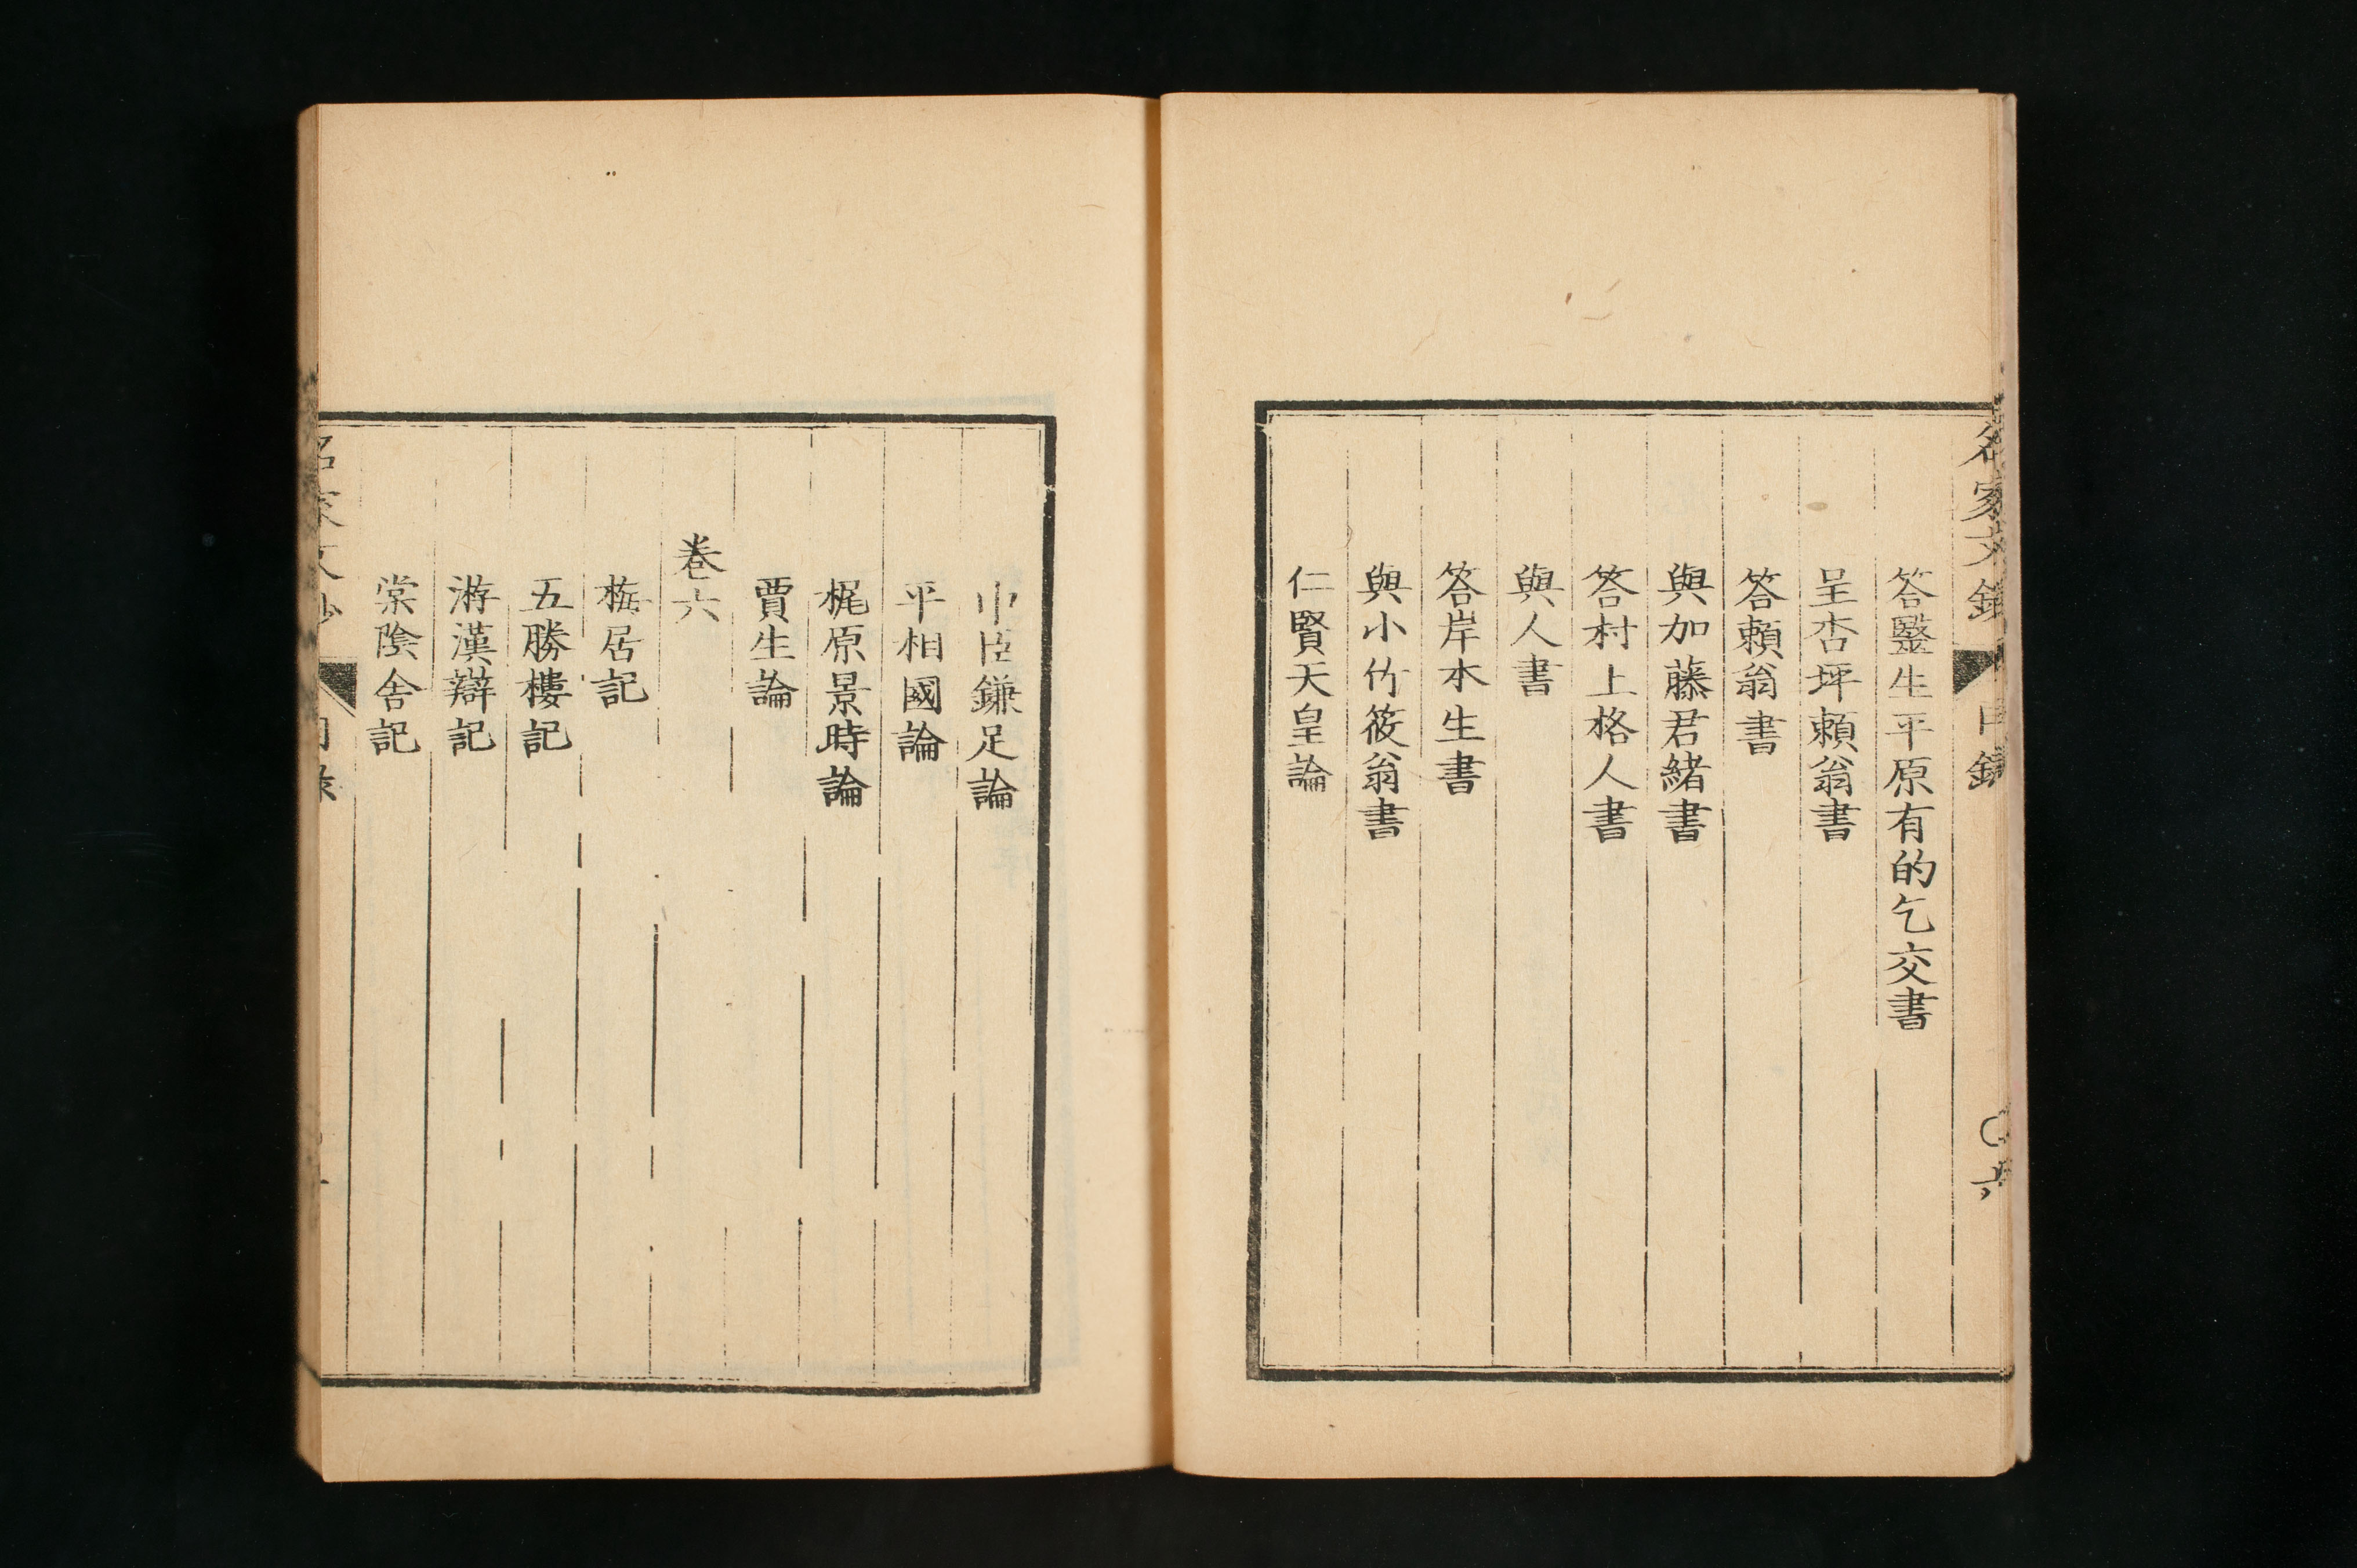 名家文鈔 目錄 ○六
答毉生平原有的乞交書
呈杏坪賴翁書
答賴翁書
與加藤君緒書
答村上格人書
與人書
答岸本生書
與小竹筱翁書
仁賢天皇論
中臣鎌足論
平相國論
梶原景時論
賈生論
卷六
梅居記
五勝樓記
游漢辯記
棠陰舍記
名家文鈔 目錄